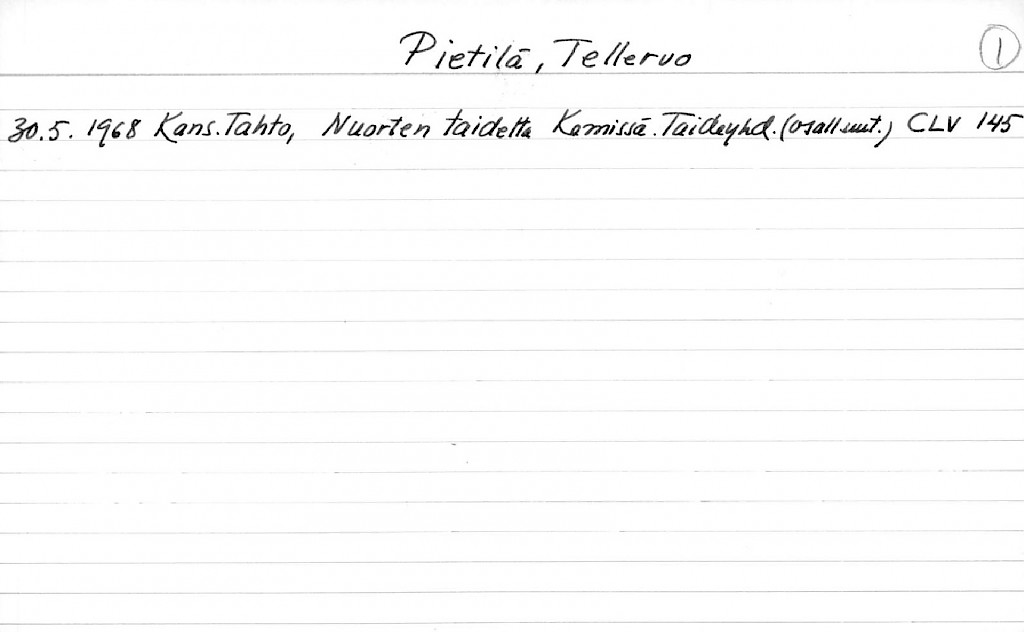 Pietilä, Tellervo
1
30.5. 1968 Kans. Tahto, Nuorten taidetta Kamissä. Taideyhd. (osall. suut.) CLV 145